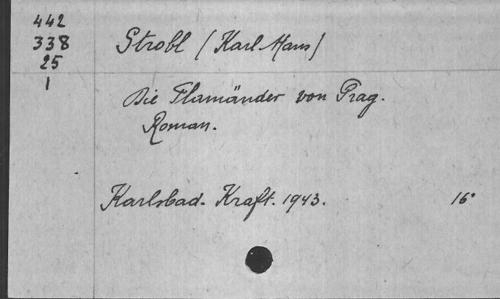 442
338
25
1
Strobl (Karl Hans)
Die Flamänder von Prag.
Roman.
Karlsbad. Kraft. 1943. 16°